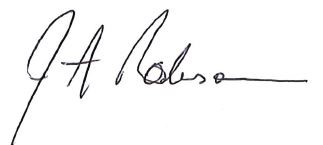 J A Robinson